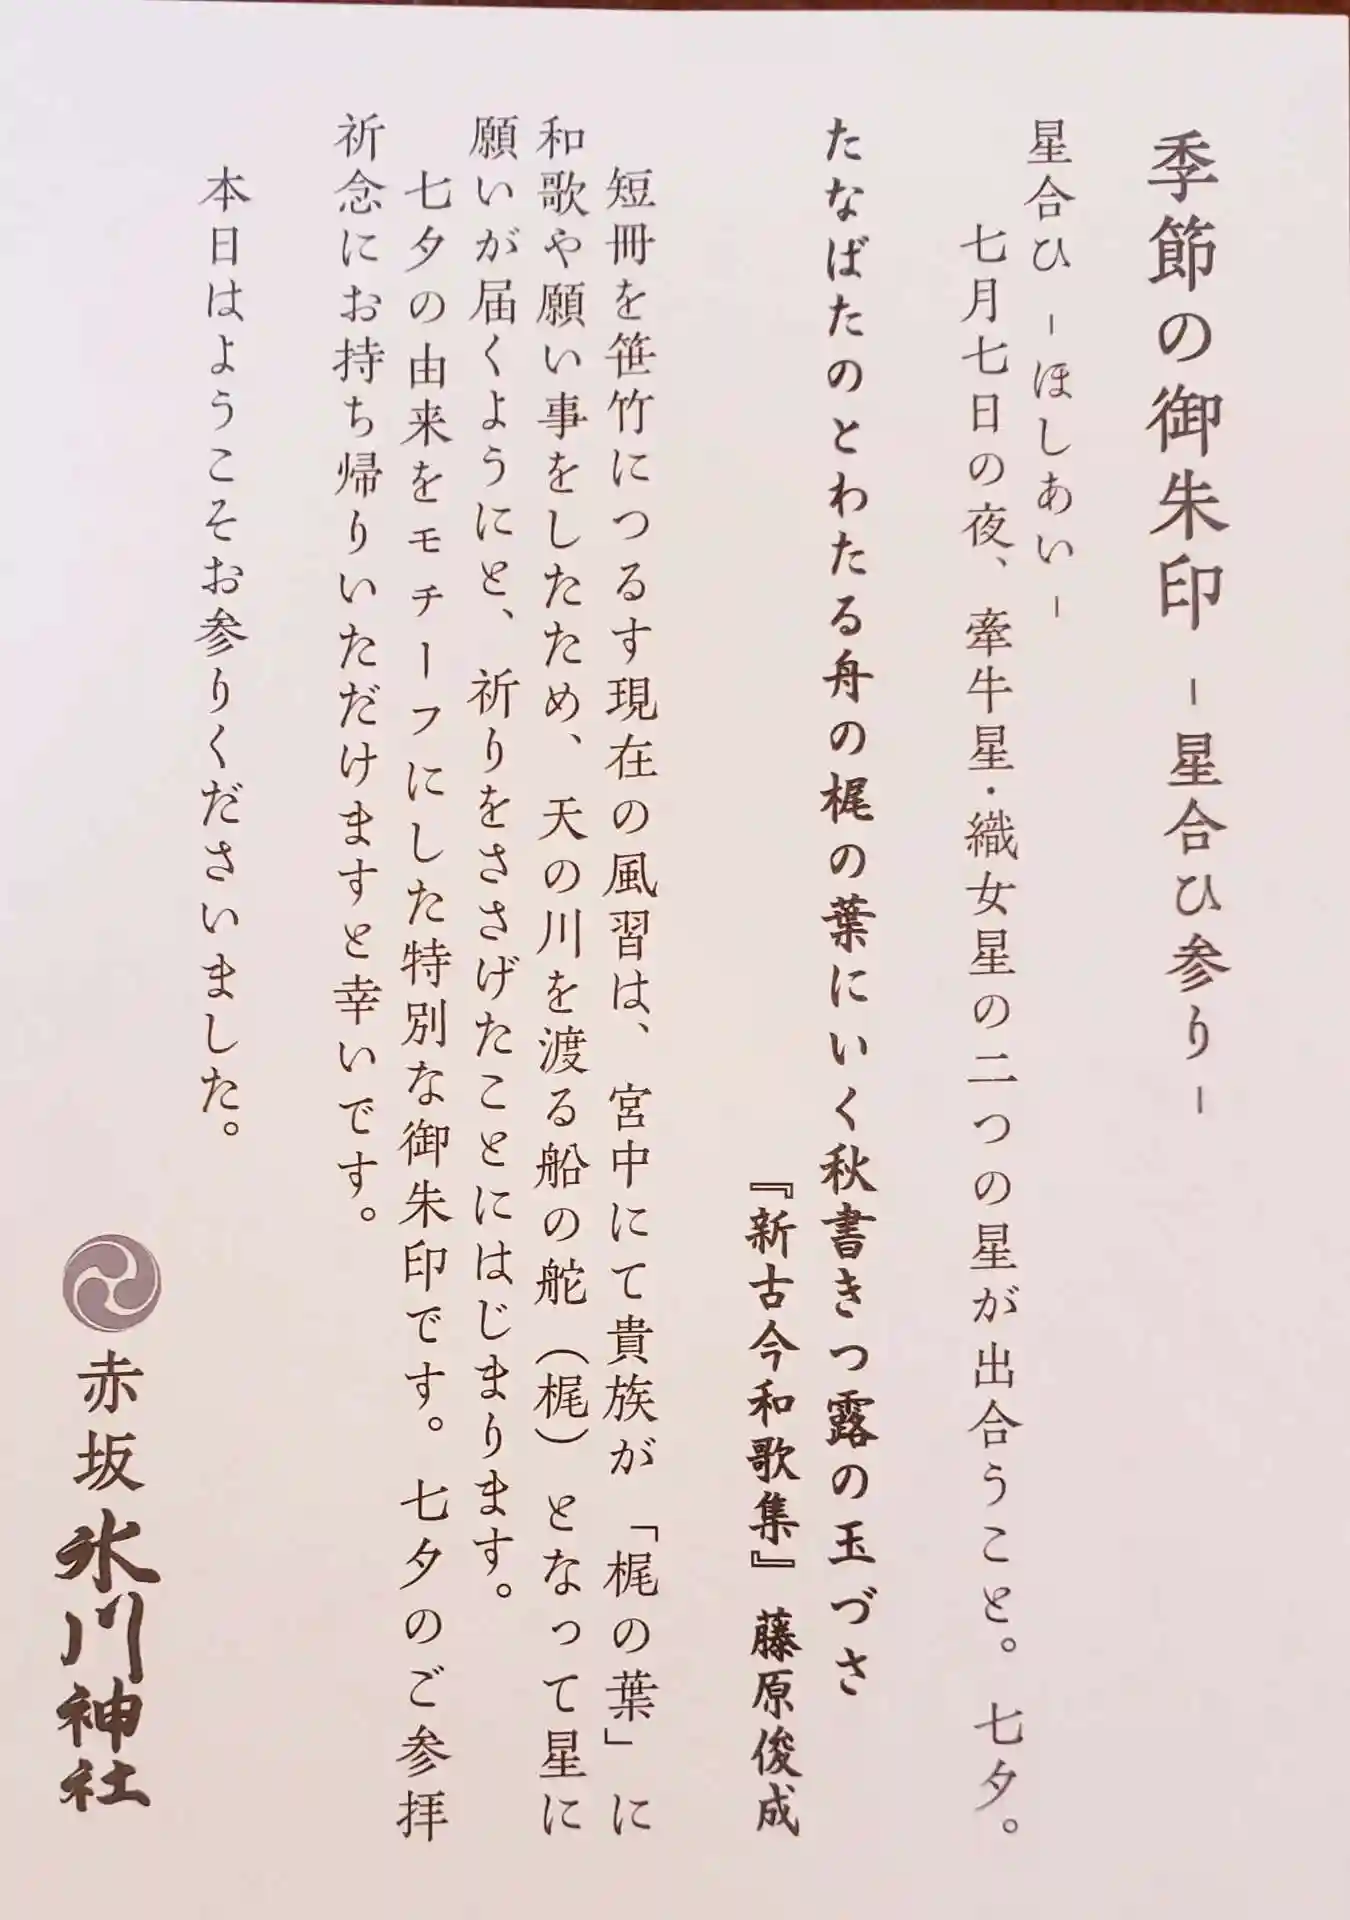 季節の御朱印 −星合ひ参り−
星合ひ −ほしあい−
七月七日の夜、牽牛星・織女星の二つの星が出合うこと。七夕。
たなばたのとわたる舟の梶の葉にいく秋書きつ露の玉づさ
『新古今和歌集』藤原俊成
短冊を笹竹につるす現在の風習は、宮中にて貴族が「梶の葉」に
和歌や願い事をしたため、天の川を渡る船の舵（梶）となって星に
願いが届くようにと、祈りをささげたことにはじまります。
七夕の由来をモチーフにした特別な御朱印です。七夕のご参拝
祈念にお持ち帰りいただけますと幸いです。
本日はようこそお参りくださいました。
赤坂氷川神社